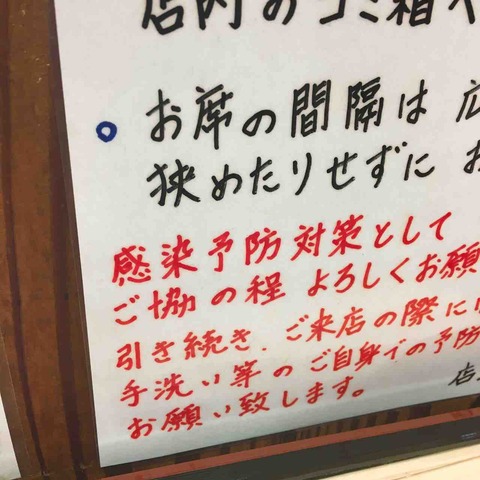 店内のゴミ箱へ
お席の間隔は 広
狭めたりせずに お
感染予防対策として
ご協の程 よろしくお願
引き続き、ご来店の際に
手洗い等のご自身での予防
お願い致します。
店